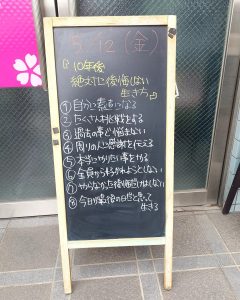 5/12 (金)
『10年後
絶対に後悔しない
生き方』
① 自分に素直になる
② たくさん挑戦をする
③ 過去の事で悩まない
④ 周りの人に感謝を伝える
⑤ 本当にやりたい事をやる
⑥ 全員から好かれようとしない
⑦ やらなかった後悔だけはしない
⑧ 今日が最後の日だと思って
生きる